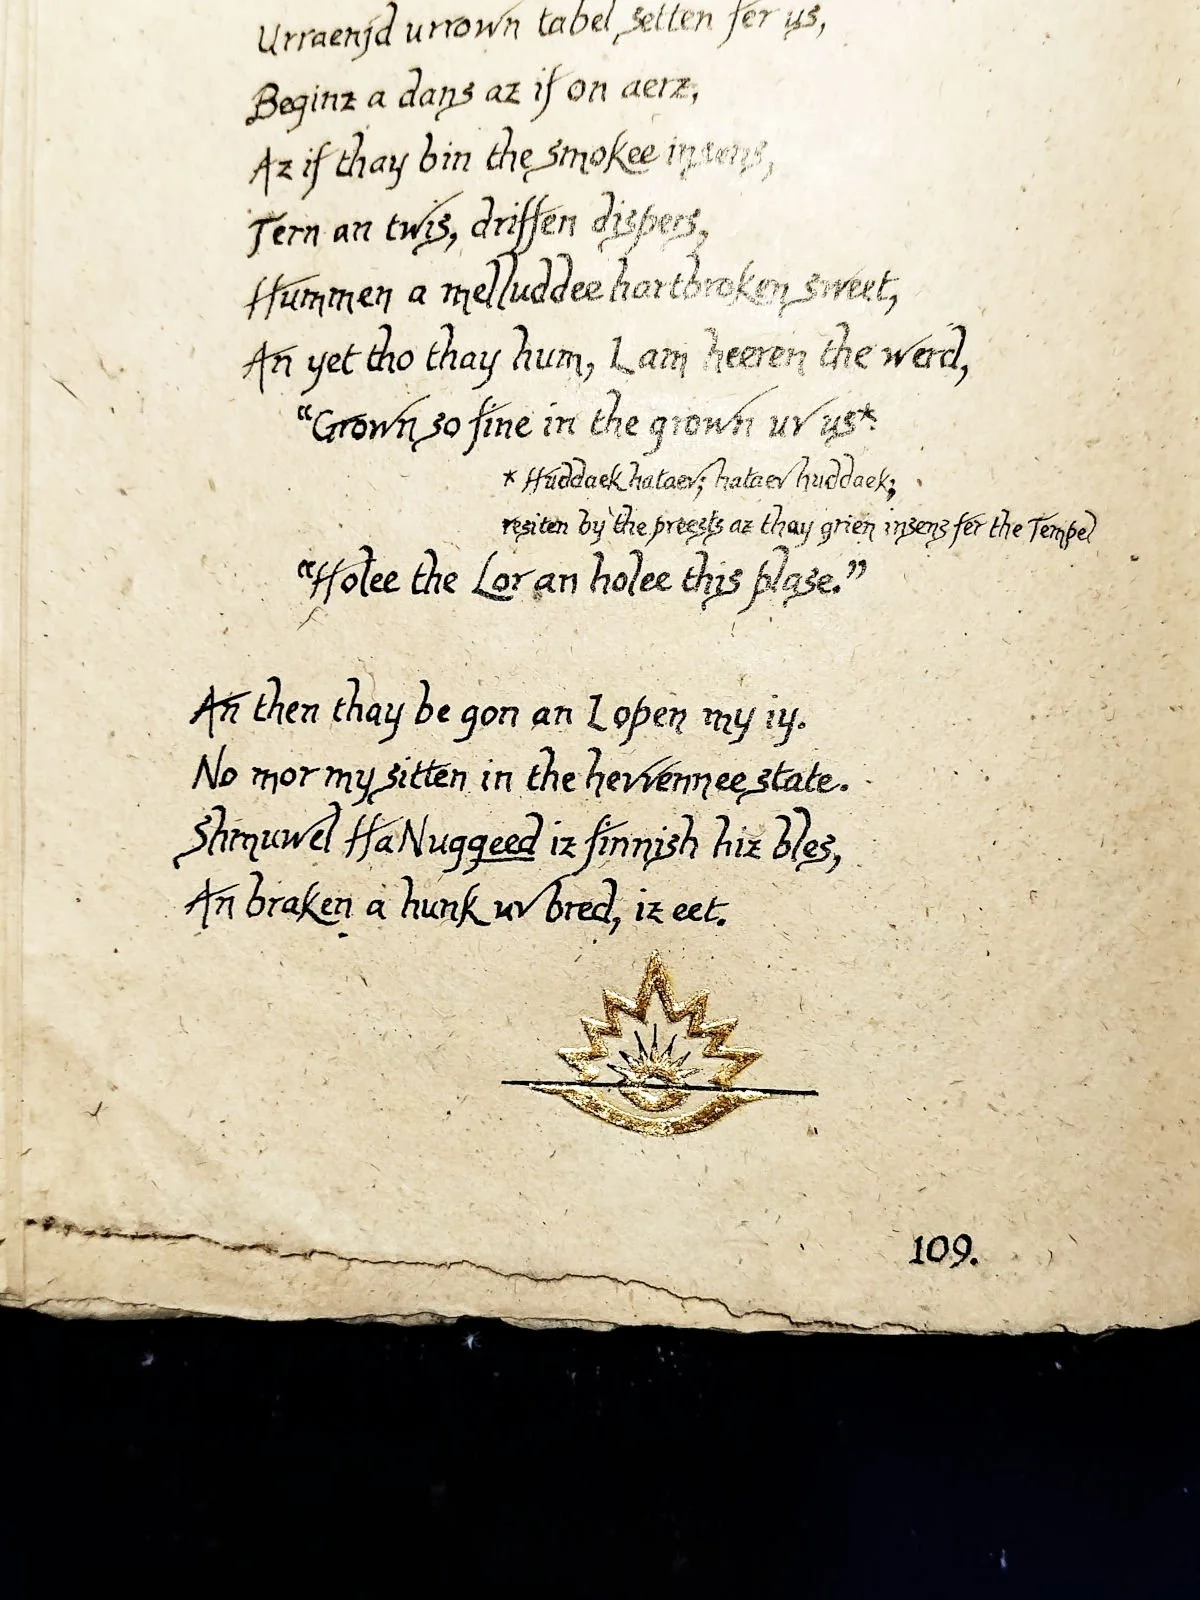 Urraenjd urrown tabel setten fer us,
Beginz a dans az if on aerz,
Az if thay bin the smokee insens,
Tern an twis, driffen dispers,
Hummen a melluddee hartbroken sweet,
An yet tho thay hum, I am heeren the werd,
“Grown so fine in the grown uv us*.
* Huddaek hataev; hataev huddaek;
resiten by the preests az thay grien insens fer the Tempel
“Holee the Lor an holee this plase.”
An then thay be gon an I open my iy.
No mor my sitten in the hevvennee state.
Shmuwel HaNuggeed iz finnish hiz bles,
An braken a hunk uv bred, iz eet.
109.